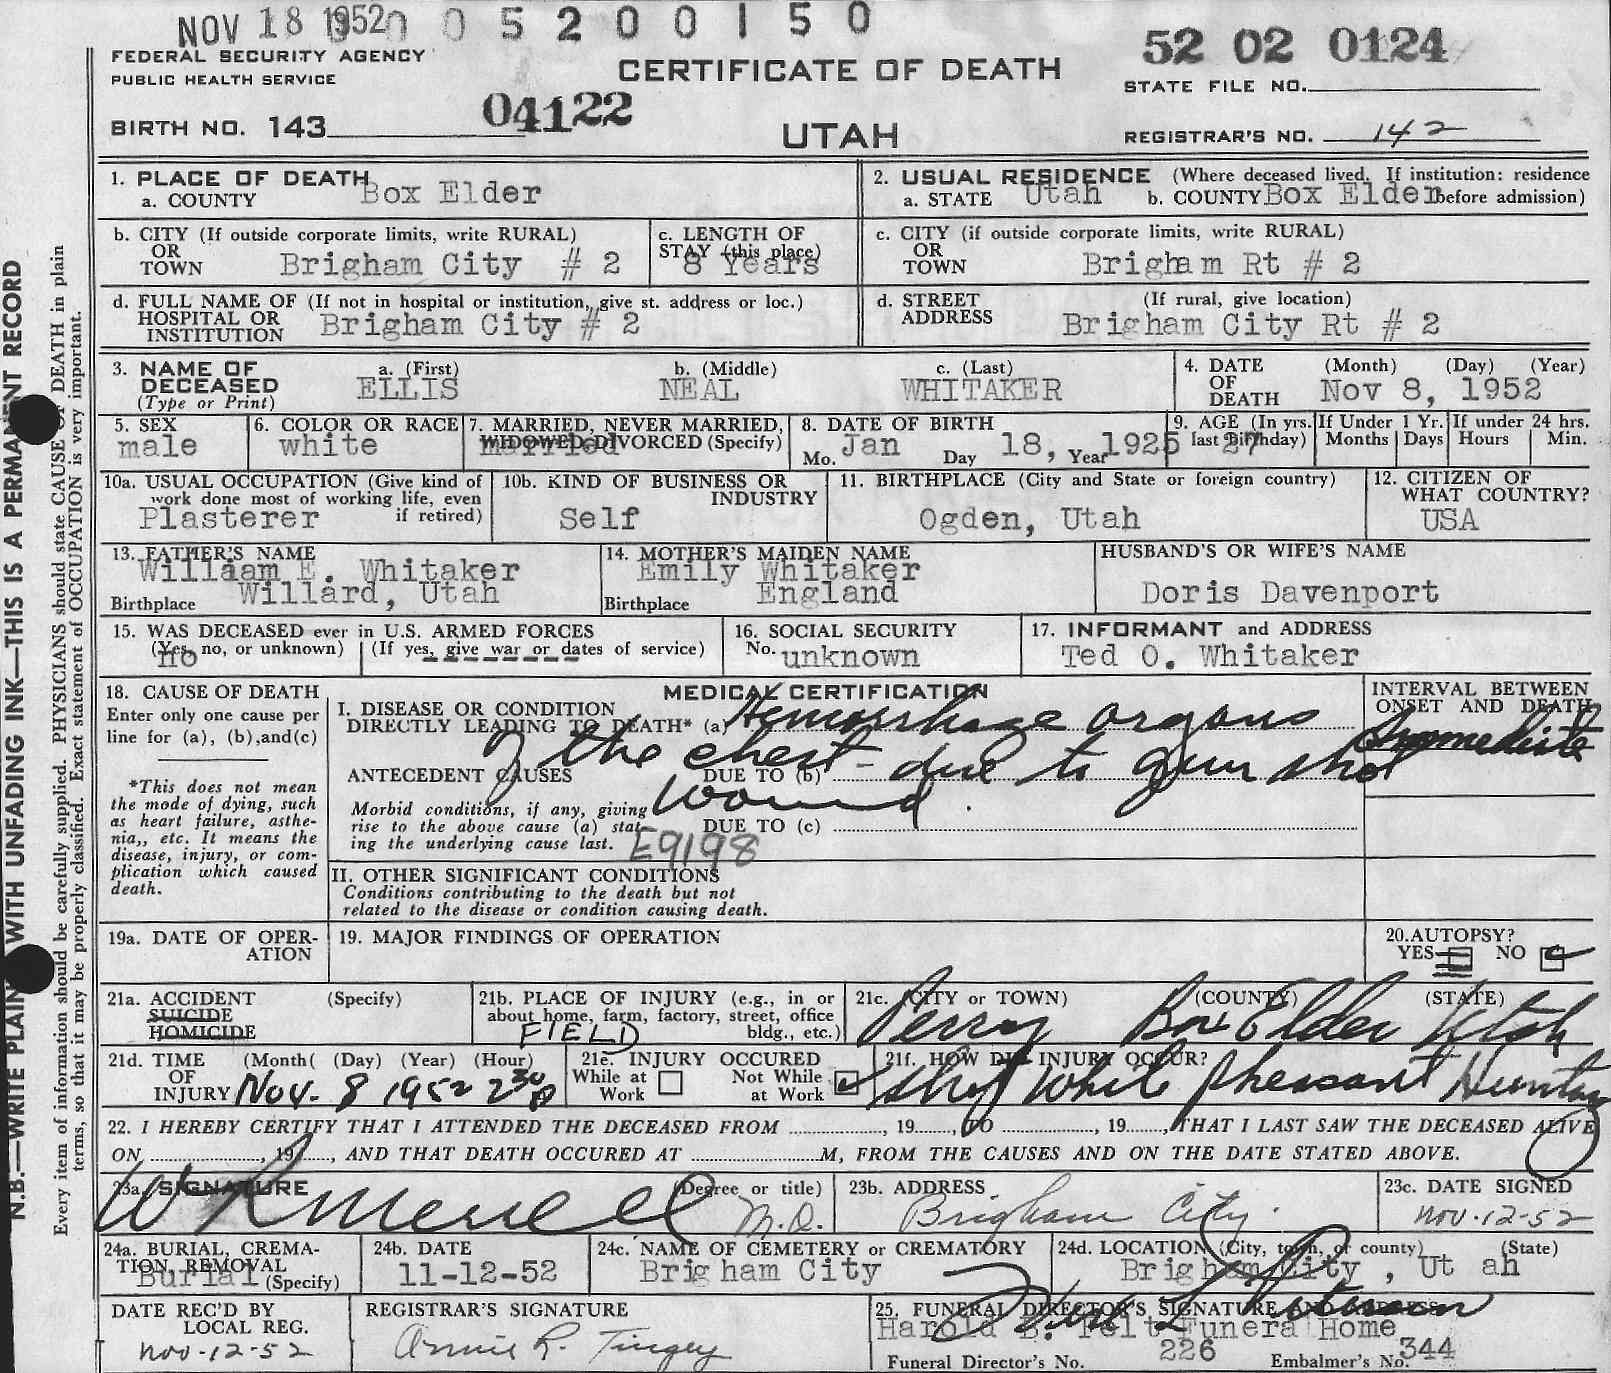 NOV 18 1952 0 0 5 2 0 0 1 5 0
52 02 0124
FEDERAL SECURITY AGENCY
PUBLIC HEALTH SERVICE
CERTIFICATE OF DEATH
STATE FILE NO.
BIRTH NO. 143 04122
UTAH
REGISTRAR'S NO. 142
1. PLACE OF DEATH
a. COUNTY Box Elder
2. USUAL RESIDENCE (Where deceased lived. If institution: residence
a. STATE Utah b. COUNTY Box Elder before admission)
b. CITY (If outside corporate limits, write RURAL)
OR
TOWN Brigham City # 2
c. LENGTH OF
STAY (this place)
8 Years
c. CITY (if outside corporate limits, write RURAL)
OR
TOWN Brigham Rt # 2
d. FULL NAME OF (If not in hospital or institution, give st. address or loc.)
HOSPITAL OR
INSTITUTION Brigham City # 2
d. STREET (If rural, give location)
ADDRESS Brigham City Rt # 2
3. NAME OF
DECEASED
(Type or Print)
a. (First) b. (Middle) c. (Last)
ELLIS NEAL WHITAKER
4. DATE (Month) (Day) (Year)
OF
DEATH Nov 8, 1952
5. SEX
male
6. COLOR OR RACE
white
7. MARRIED, NEVER MARRIED,
WIDOWED, DIVORCED (Specify)
married
8. DATE OF BIRTH
Mo. Jan Day 18, Year 1925
9. AGE (In yrs.
last birthday) 27
If Under 1 Yr.
Months Days
If under 24 hrs.
Hours Min.
10a. USUAL OCCUPATION (Give kind of
work done most of working life, even
if retired)
Plasterer
10b. KIND OF BUSINESS OR
INDUSTRY
Self
11. BIRTHPLACE (City and State or foreign country)
Ogden, Utah
12. CITIZEN OF
WHAT COUNTRY?
USA
13. FATHER'S NAME
William E. Whitaker
Birthplace Willard, Utah
14. MOTHER'S MAIDEN NAME
Emily Whitaker
Birthplace England
HUSBAND'S OR WIFE'S NAME
Doris Davenport
15. WAS DECEASED ever in U.S. ARMED FORCES
(Yes, no, or unknown) (If yes, give war or dates of service)
no
16. SOCIAL SECURITY
No. unknown
17. INFORMANT and ADDRESS
Ted O. Whitaker
18. CAUSE OF DEATH
Enter only one cause per
line for (a), (b), and (c)
*This does not mean
the mode of dying, such
as heart failure, asthe-
nia,, etc. It means the
disease, injury, or com-
plication which caused
death.
MEDICAL CERTIFICATION
I. DISEASE OR CONDITION
DIRECTLY LEADING TO DEATH* (a) Hemorrhage organs
of the chest - due to gun shot
wound.
ANTECEDENT CAUSES DUE TO (b)
Morbid conditions, if any, giving
rise to the above cause (a) stat-
ing the underlying cause last.
DUE TO (c)
E9198
INTERVAL BETWEEN
ONSET AND DEATH
Immediate
II. OTHER SIGNIFICANT CONDITIONS
Conditions contributing to the death but not
related to the disease or condition causing death.
19a. DATE OF OPER-
ATION
19. MAJOR FINDINGS OF OPERATION
20. AUTOPSY?
YES NO
21a. ACCIDENT (Specify)
SUICIDE
HOMICIDE
21b. PLACE OF INJURY (e.g., in or
about home, farm, factory, street, office
bldg., etc.)
FIELD
21c. (CITY or TOWN) (COUNTY) (STATE)
Perry Box Elder Utah
21d. TIME (Month( (Day) (Year) (Hour)
OF
INJURY Nov. 8 1952 2 30 P
21e. INJURY OCCURED
While at Work Not While at Work
21f. HOW DID INJURY OCCUR?
shot while pheasant Hunting
22. I HEREBY CERTIFY THAT I ATTENDED THE DECEASED FROM , 19 , TO , 19 , THAT I LAST SAW THE DECEASED ALIVE
ON , 19 , AND THAT DEATH OCCURED AT M, FROM THE CAUSES AND ON THE DATE STATED ABOVE.
23a. SIGNATURE (Degree or title)
W R Merrell M.D.
23b. ADDRESS
Brigham City.
23c. DATE SIGNED
Nov-12-52
24a. BURIAL, CREMA-
TION, REMOVAL
(Specify)
Burial
24b. DATE
11-12-52
24c. NAME OF CEMETERY or CREMATORY
Brigham City
24d. LOCATION (City, town, or county) (State)
Brigham City, Utah
DATE REC'D BY
LOCAL REG.
Nov-12-52
REGISTRAR'S SIGNATURE
Annie R. Tingey
25. FUNERAL DIRECTOR'S SIGNATURE AND ADDRESS
Harold B. Felt Funeral Home
Funeral Director's No. 226 Embalmer's No. 344
N.B.—WRITE PLAIN WITH UNFADING INK—THIS IS A PERMANENT RECORD
Every item of information should be carefully supplied. PHYSICIANS should state CAUSE OF DEATH in plain
terms, so that it may be properly classified. Exact statement of OCCUPATION is very important.